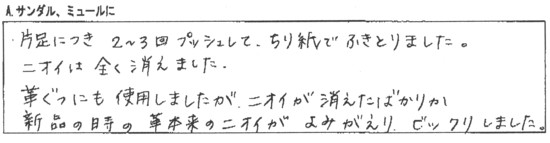 A. サンダル、ミュールに
・片足につき 2〜3回 プッシュして、ちり紙で ふきとりました。
ニオイは 全く 消えました.
革ぐつにも 使用しましたが、ニオイが 消えたばかりか
新品の時の 革本来のニオイが よみがえり、ビックリしました。